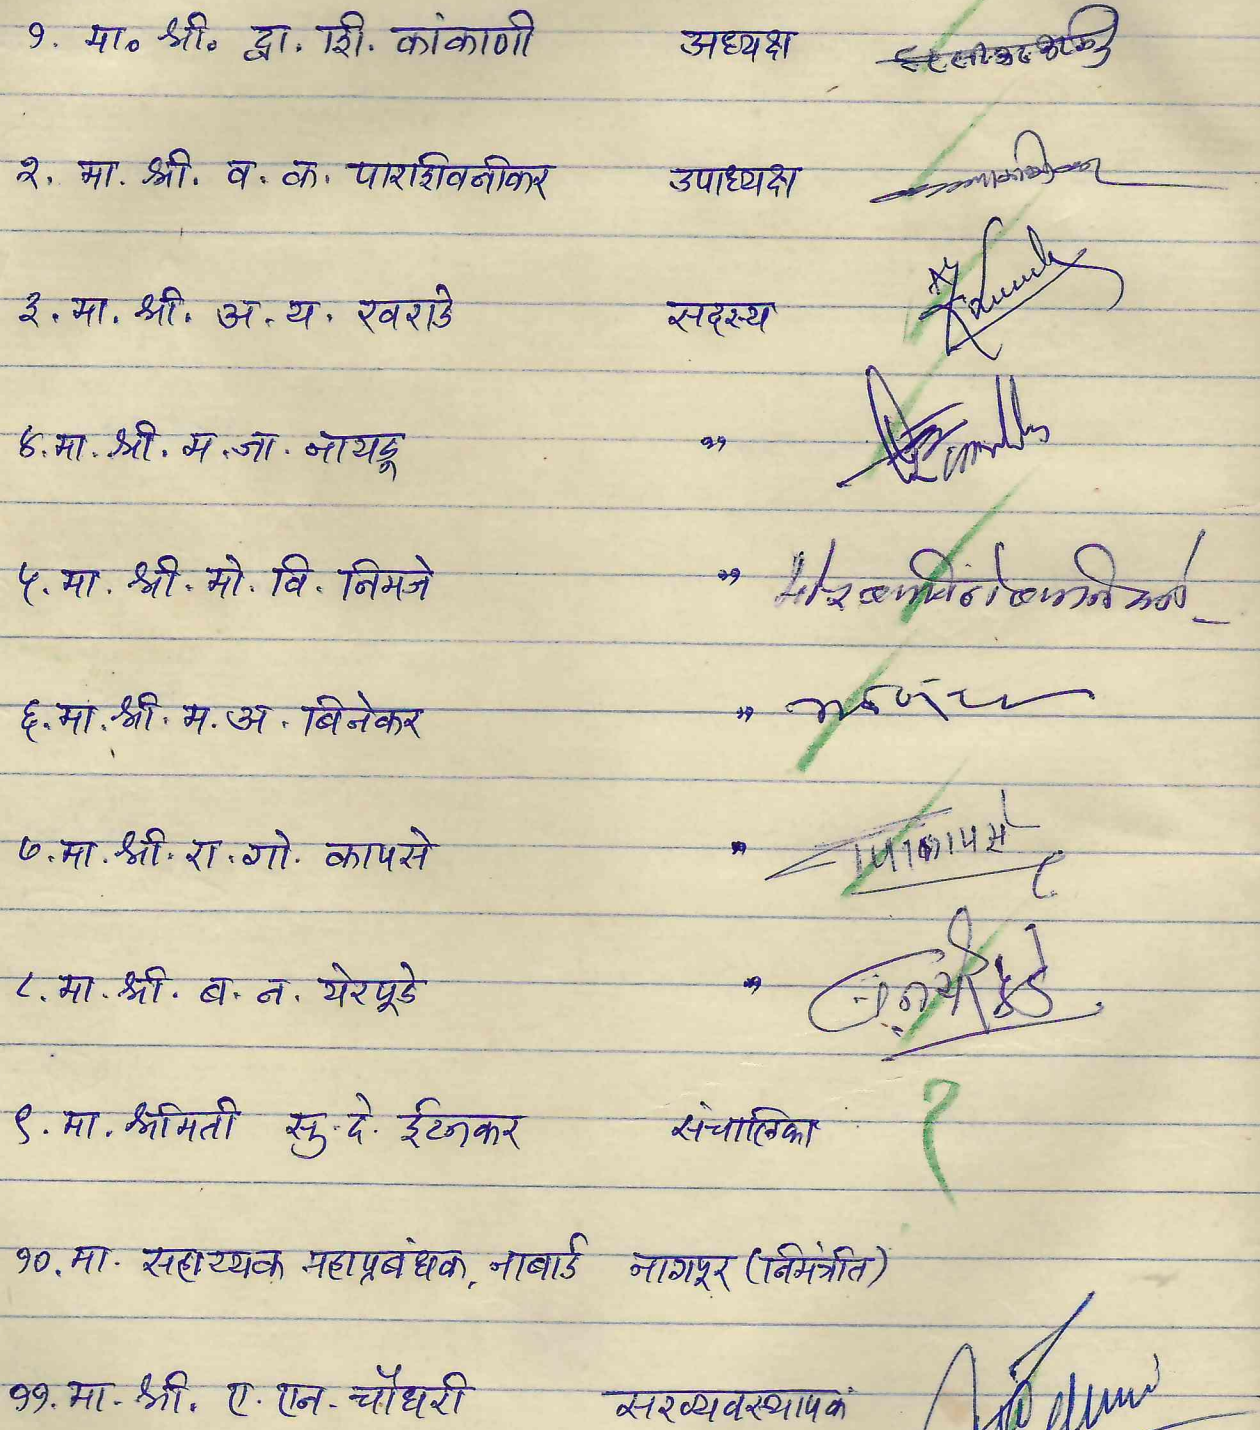 १. मा. श्री. द्वा. शि. कांकाणी अध्यक्ष
२. मा. श्री. व. क. पारशिवनीकर उपाध्यक्ष
३. मा. श्री. अ. य. खराडे सदस्य
४. मा. श्री. म. जा. नायडू "
५. मा. श्री. मो. वि. निमजे "
६. मा. श्री. म. अ. बिनेकर "
७. मा. श्री. रा. गो. कापसे "
८. मा. श्री. ब. न. येरपूडे "
९. मा. श्रीमती सु. दे. ईटनकर संचालिका ?
१०. मा. सहाय्यक महाप्रबंधक, नाबार्ड नागपूर (निमंत्रीत)
११. मा. श्री. ए. एन. चौधरी सरव्यवस्थापक